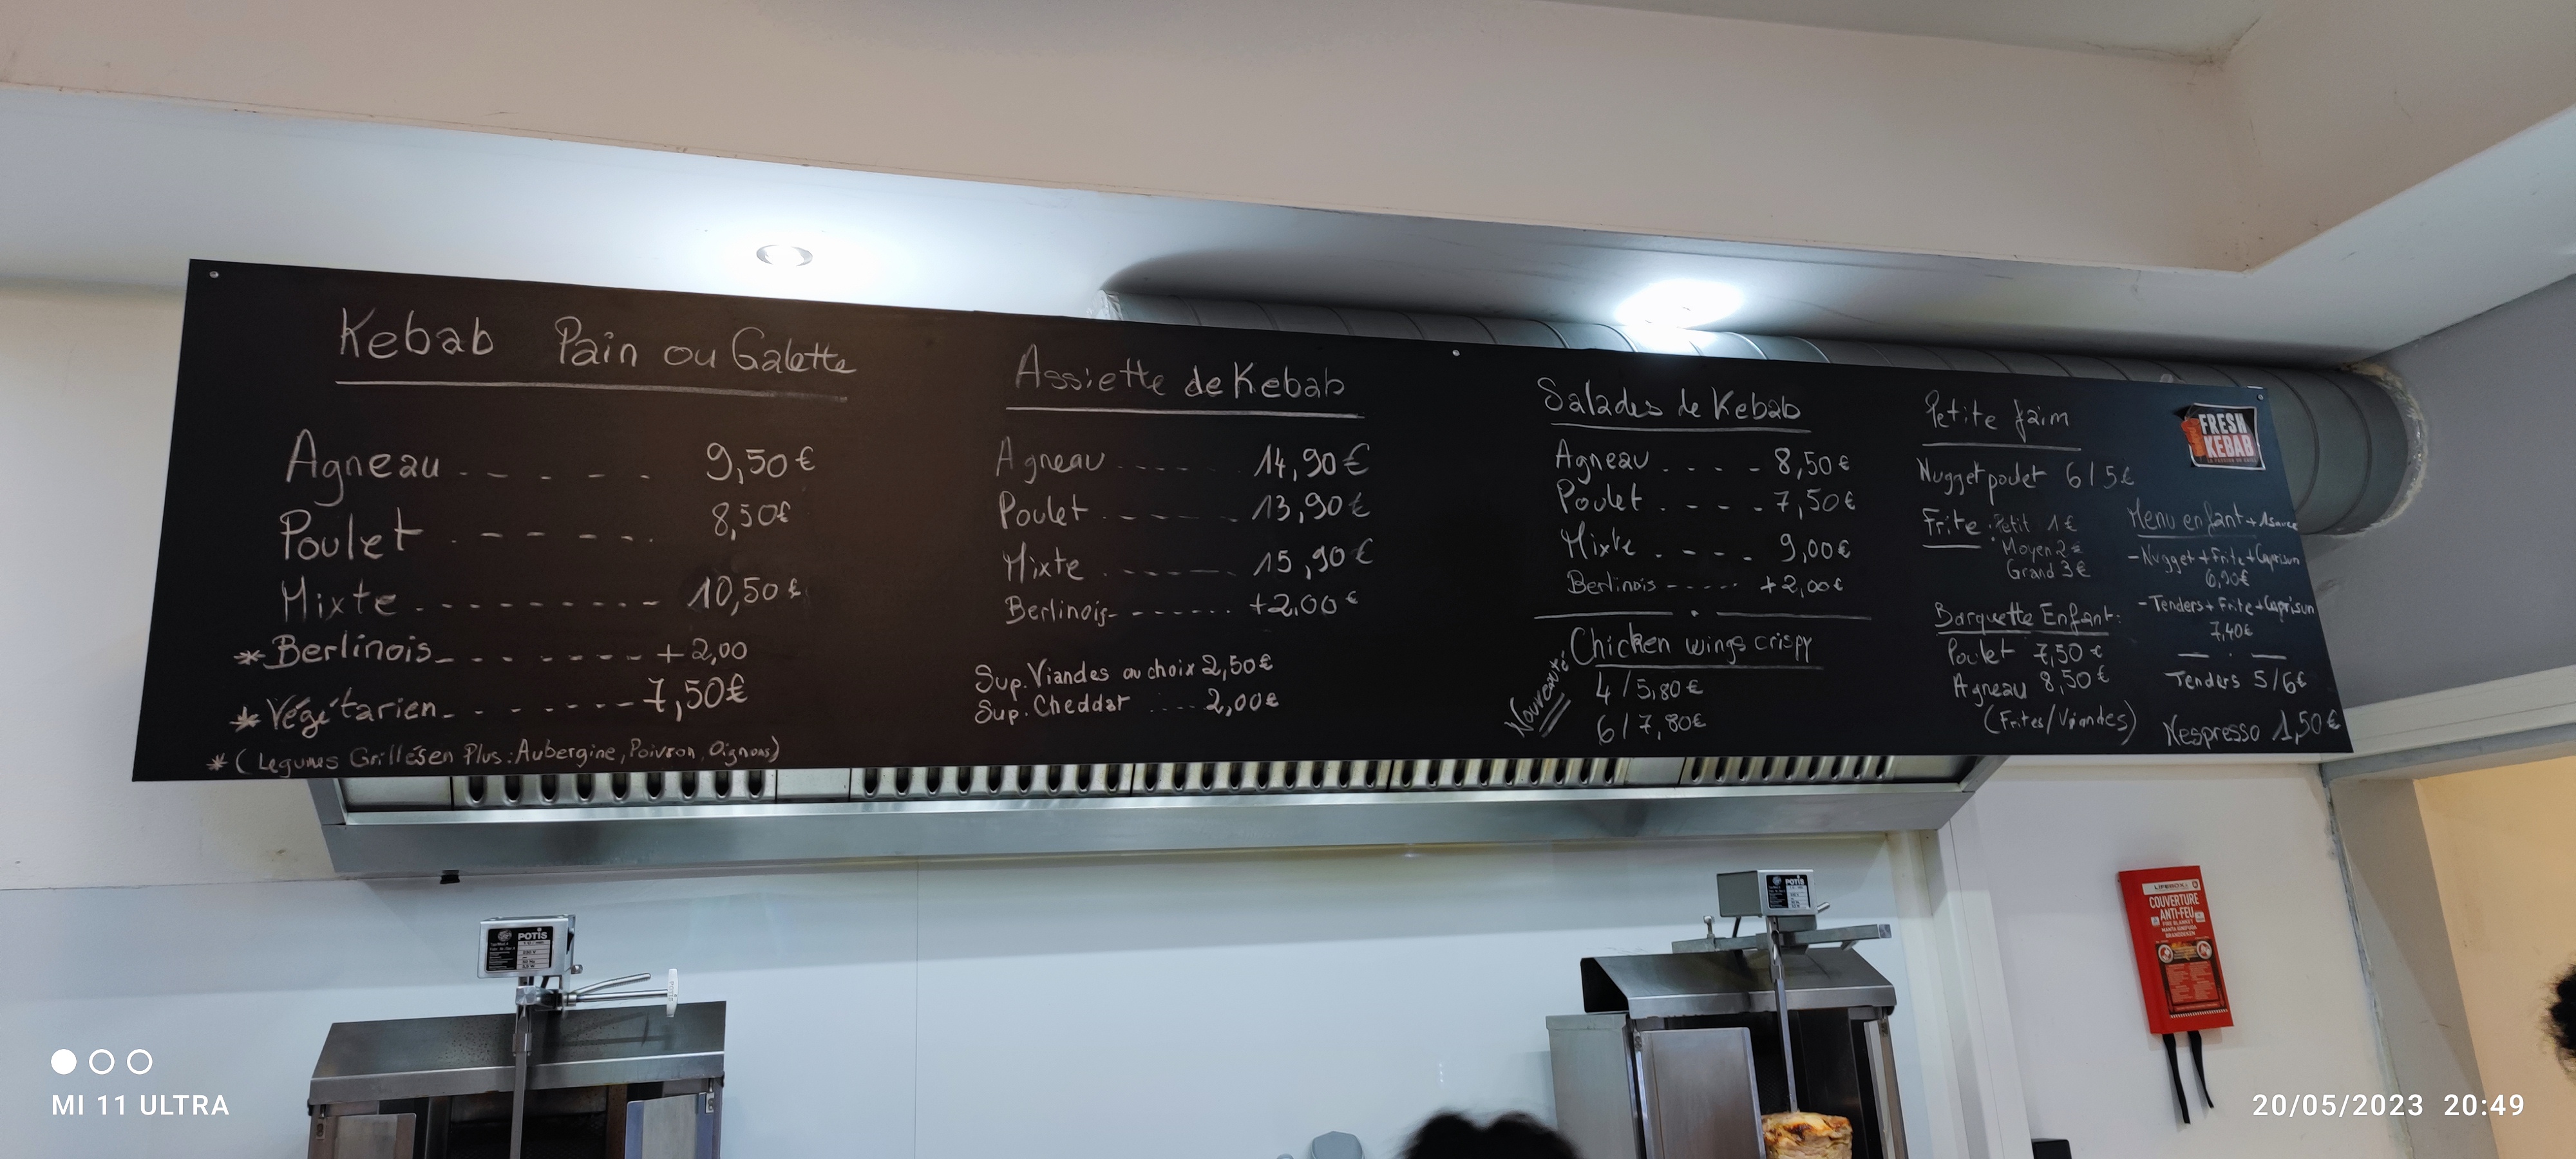 Kebab Pain ou Galette
Agneau 9,50€
Poulet 8,50€
Mixte 10,50€
*Berlinois +2,00
*Végétarien 7,50€
*(Legumes Grillés en Plus : Aubergine, Poivron, Oignons)
Assiette de Kebab
Agneau 14,90€
Poulet 13,90€
Mixte 15,90€
Berlinois +2,00€
Sup. Viandes au choix 2,50€
Sup. Cheddar 2,00€
Salades de Kebab
Agneau 8,50€
Poulet 7,50€
Mixte 9,00€
Berlinois +2,00€
Nouveauté
Chicken wings crispy
4/5,80€
6/7,80€
Petite faim
Nugget poulet 6/5€
Frite : Petit 1€
Moyen 2€
Grand 3€
Barquette Enfant :
Poulet 7,50€
Agneau 8,50€
(Frites/Viandes)
FRESH
KEBAB
Menu enfant + 1 sauce
- Nugget + Frite + Caprisun
6,90€
- Tenders + Frite + Caprisun
7,40€
Tenders 5/6€
Nespresso 1,50€
POTIS
POTIS
LIFEBOX
COUVERTURE
ANTI-FEU
FIRE BLANKET
MANTA IGNIFUGA
BRANDDEKEN
MI 11 ULTRA
20/05/2023 20:49